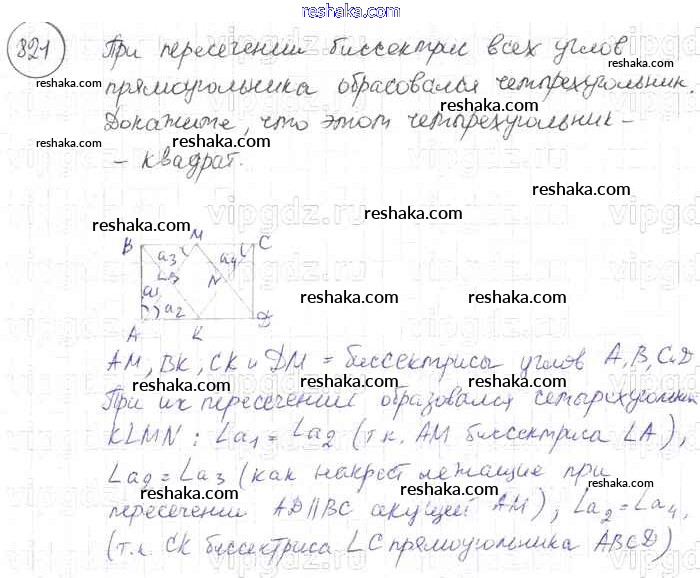 reshaka.com
821 При пересечении биссектрис всех углов
прямоугольника образовался четырехугольник.
Докажите, что этот четырехугольник -
- квадрат.
reshaka.com
reshaka.com
reshaka.com
reshaka.com
reshaka.com
B M C
a3 a4
L N
a1 a2
A K D
reshaka.com
reshaka.com
reshaka.com
AM, BK, CK и DM = биссектрисы углов A, B, C и D
При их пересечении образовался четырехугольник
KLMN: ∠a1 = ∠a2 (т.к. AM биссектриса ∠A),
∠a2 = ∠a3 (как накрест лежащие при
пересечении AD||BC секущей AM), ∠a2 = ∠a4,
(т.к. CK биссектриса ∠C прямоугольника ABCD)
reshaka.com
reshaka.com
reshaka.com
reshaka.com
reshaka.com
reshaka.com
reshaka.com
reshaka.com